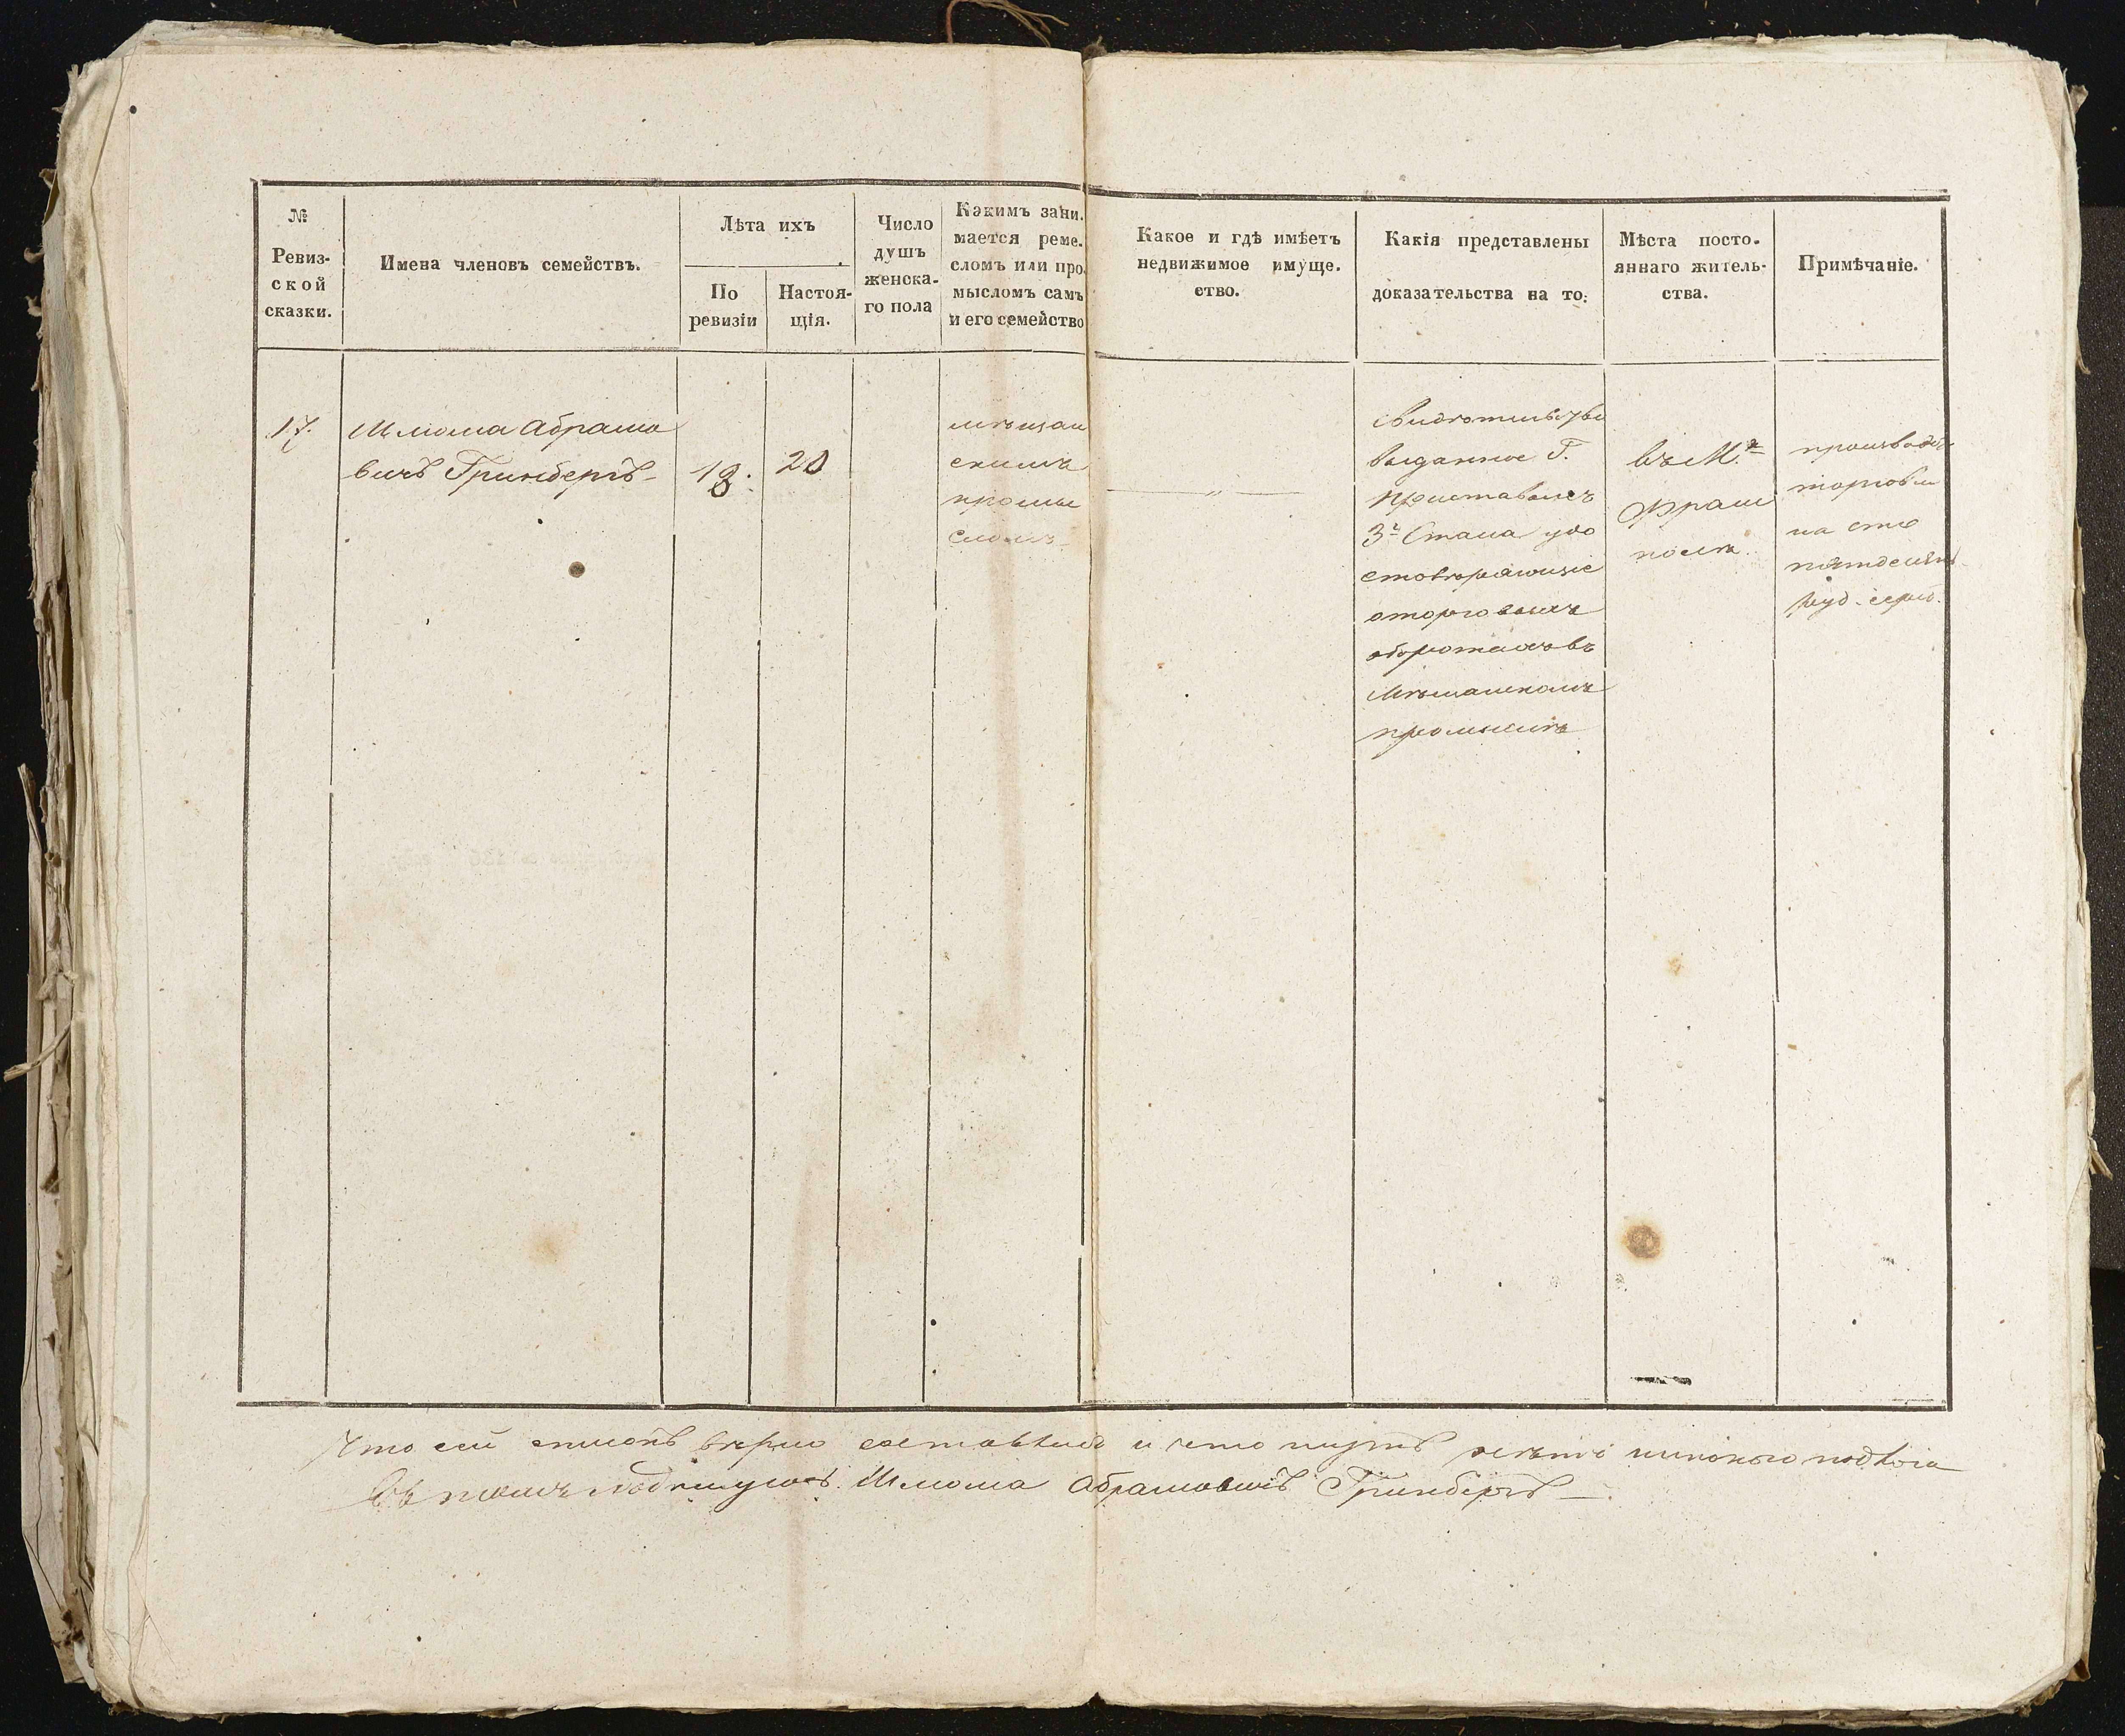 №
Ревиз-
ской
сказки.
Имена членовъ семействъ.
Лѣта ихъ
По
ревизіи
Настоя-
щія.
Число
душъ
женска-
го пола
Какимъ зани-
мается реме-
сломъ или про-
мысломъ самъ
и его семейство
Какое и гдѣ имѣетъ
недвижимое имуще-
ство.
Какія представлены
доказательства на то:
Мѣста посто-
яннаго житель-
ства.
Примѣчаніе.
17.
Шлома Абрамо
вичъ Гринбергъ
18.
20
мѣщан
скимъ
промы
сломъ
— „ —
Свидѣтельство
выданное Г.
Приставомъ
3го Стана удо
стовѣряющіе
о торговыхъ
оборотахъ въ
Мѣщанскомъ
промыслѣ
въ М.
Фрам
полѣ
производ
торговли
на сто
пятдесятъ
руб. сереб.
Что сей списокъ вѣрно составленъ и что
въ томъ подпишуюсь Шлома Абрамовичъ Гринбергъ